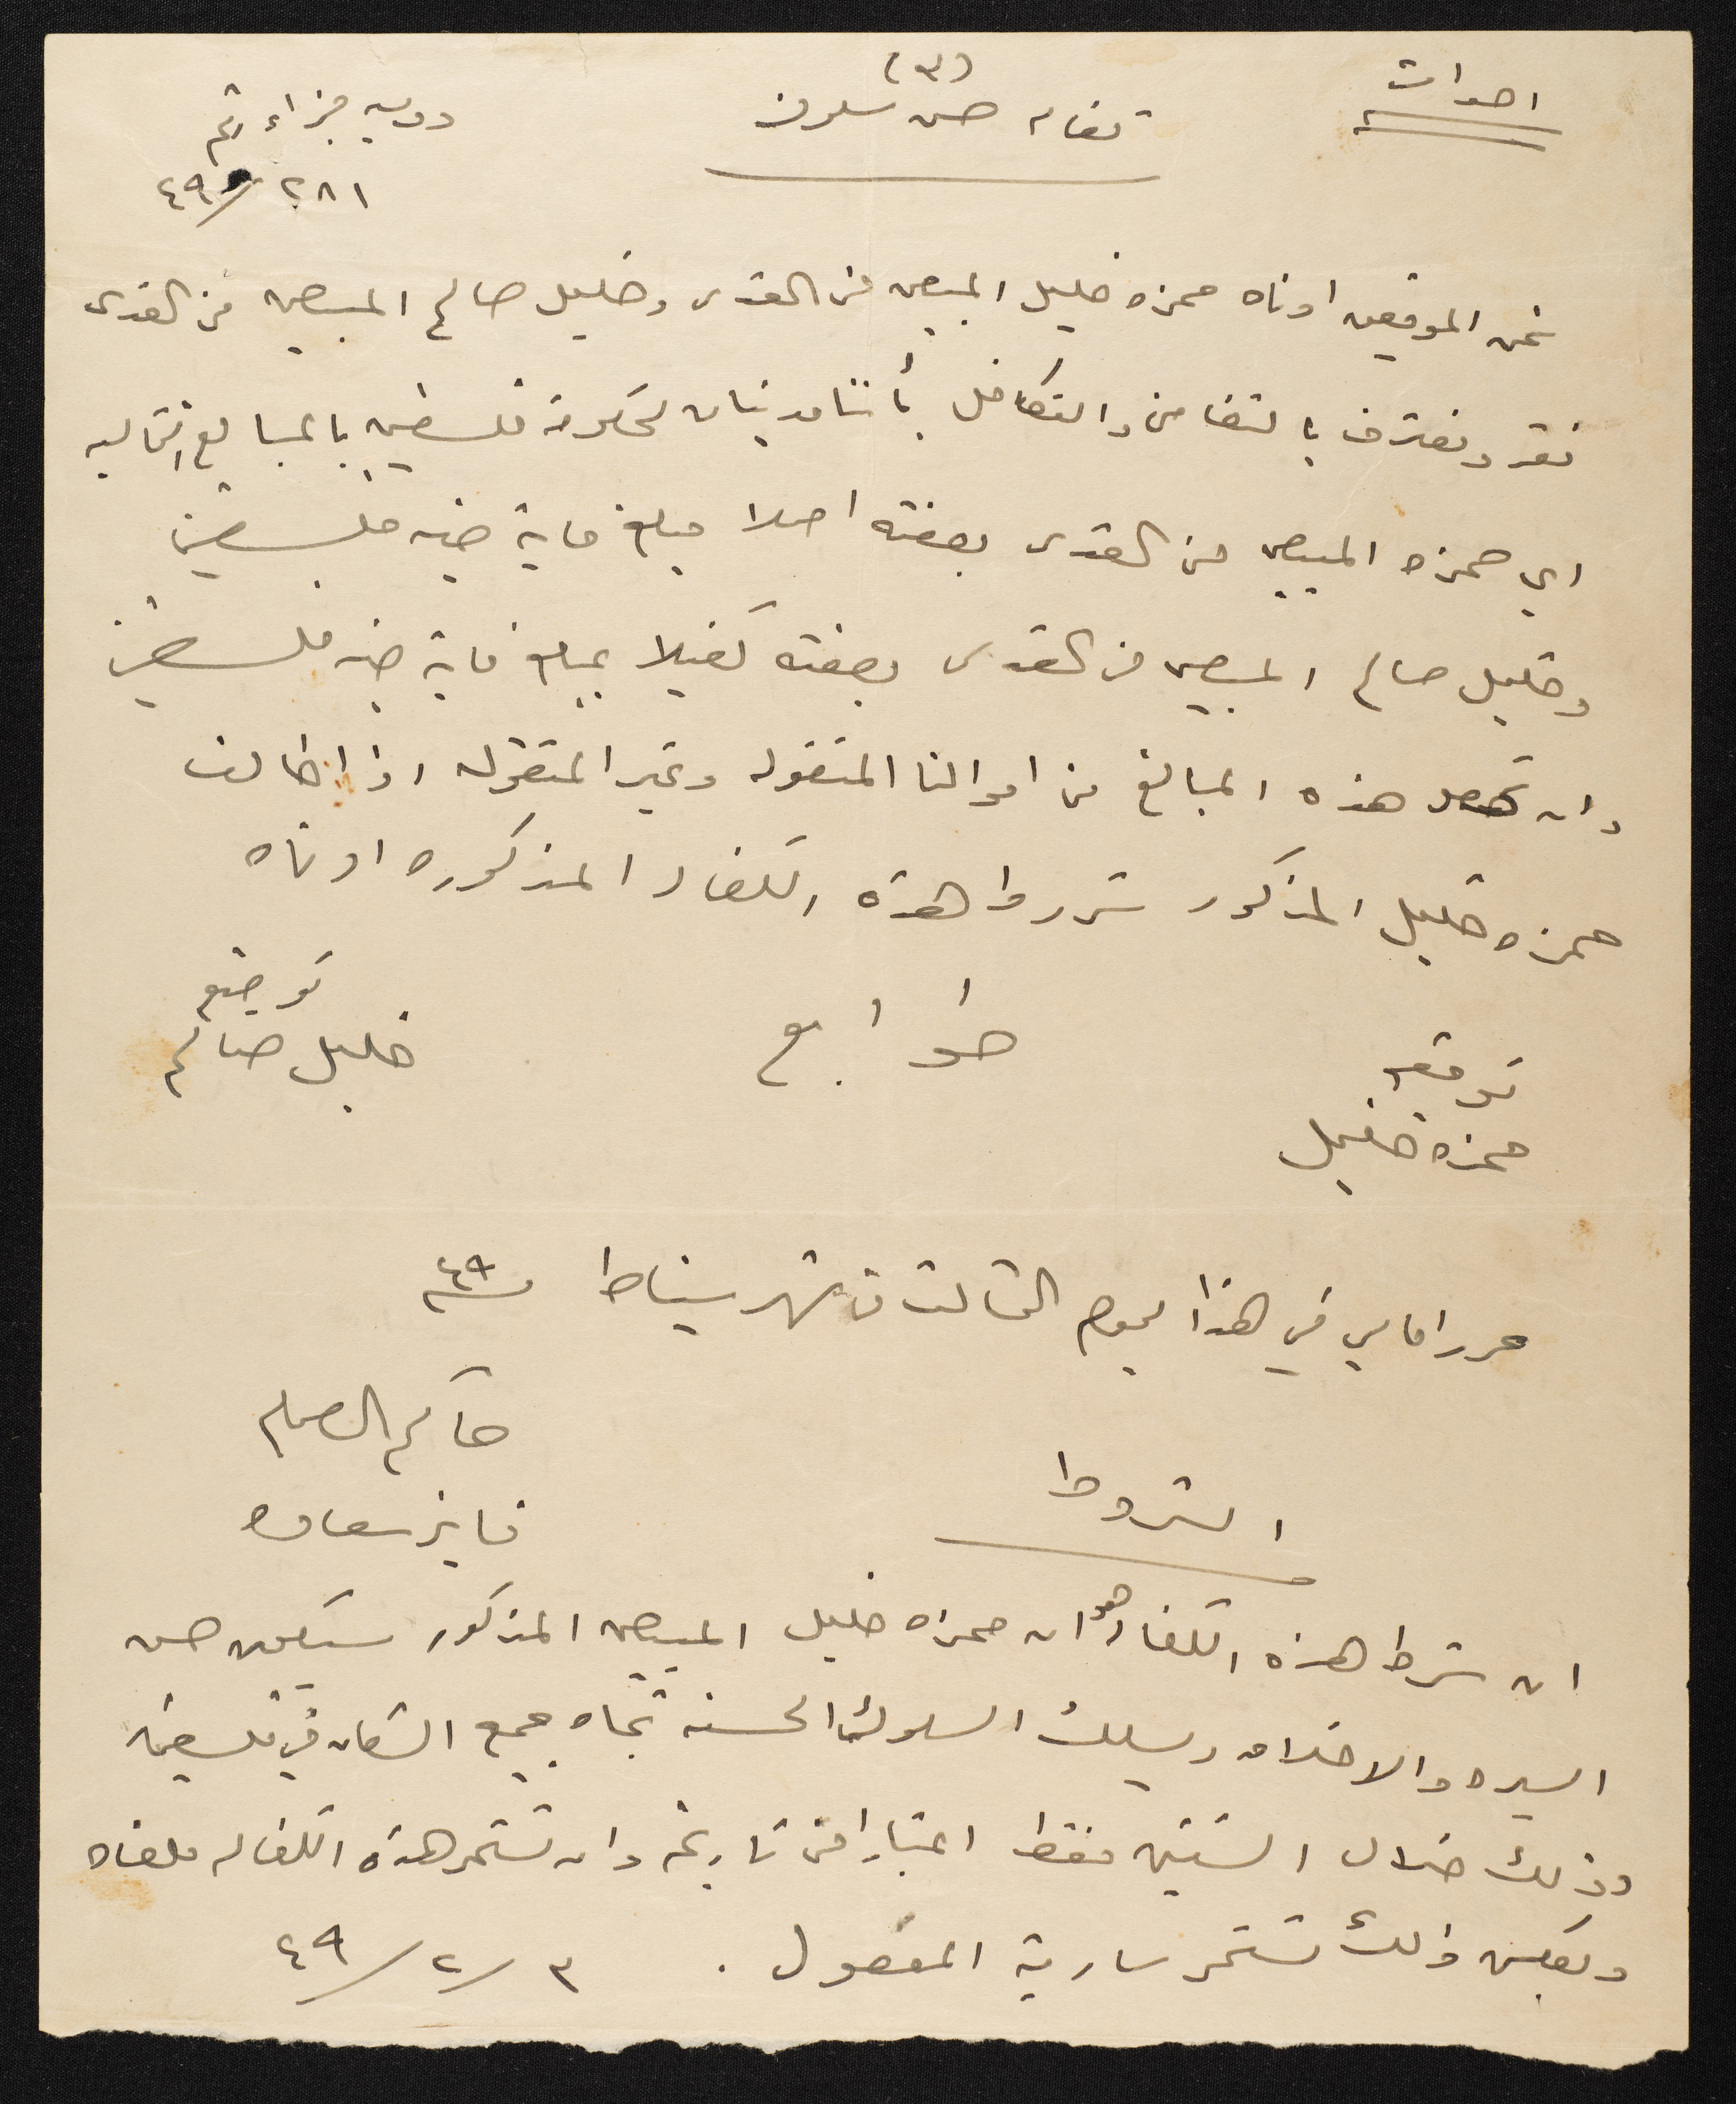 احداث
(٣)
كفالة حسن سلوك
دعوى جزاء رقم
٢٨١/٤٩
نحن الموقعين ادناه حمزه خليل المبيض من القدس وخليل صالح المبيض من القدس
نقر ونعترف بالتضامن والتكافل بأننا مدينان لحكومة فلسطين بالمبالغ التاليه
اي حمزه المبيض من القدس بصفته اصلا مبلغ ماية جنيه فلسطيني
وخليل صالح المبيض من القدس بصفته كفيلا بمبلغ ماية جنيه فلسطيني
وان تحصل هذه المبالغ من اموالنا المنقوله وغير المنقوله اذا خالف
حمزه خليل المذكور شروط هذه الكفاله المذكوره ادناه
توقيع
خليل صالح
طوابع
توقيع
حمزه خليل
حرر امامي في هذا اليوم الثالث من شهر شباط سنة ٤٩
حاكم الصلح
فايز سعاده
الشروط
ان شرط هذه الكفاله هو ان حمزه خليل المبيض المذكور سيكون حسن
السيره والاخلاق ويسلك السلوك الحسنه تجاه جميع السكان في فلسطين
وذلك خلال السنتين فقط اعتبارا من تاريخه وان تستمر هذه الكفاله ملغاه
وبعكس ذلك تستمر سارية المفعول . ٣/٢/٤٩